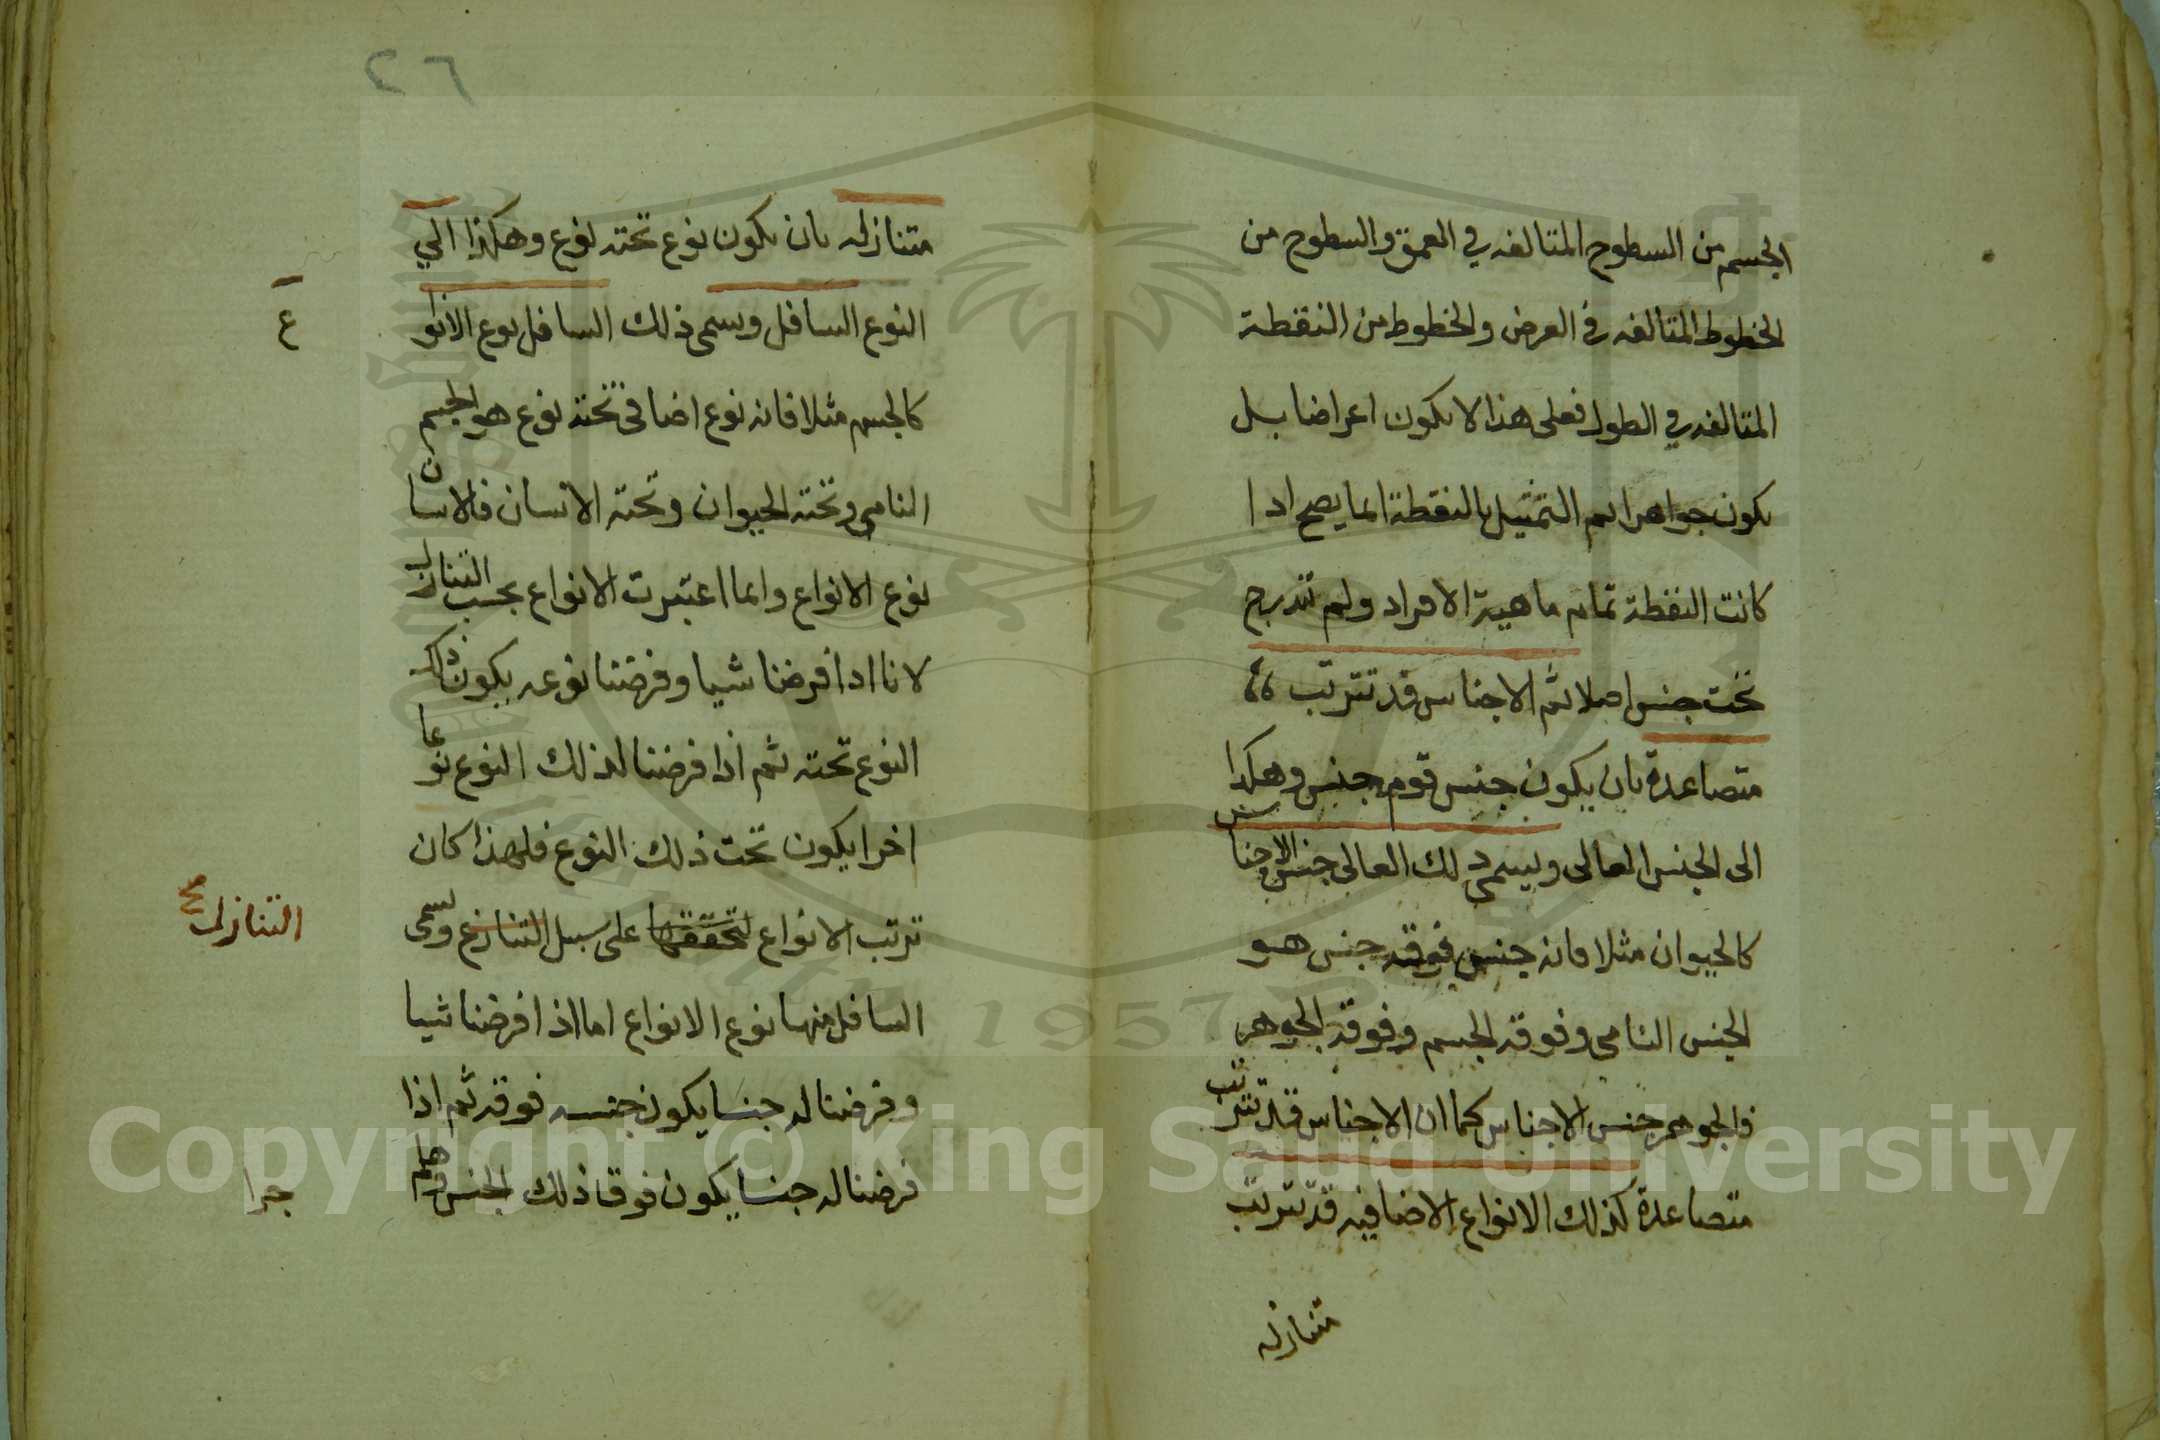 الجسم من السطوح المتالفه في العمق والسطوح من
الخطوط المتالفه في العرض والخطوط من النقطة
المتالفه في الطول فعلى هذا لا يكون اعراضا بل
يكون جواهر ثم التمثيل بالنقطة انما يصح اذا
كانت النقطة تمام ماهية الافراد ولم تندرج
تحت جنس اصلا ثم الاجناس قد تترتب
متصاعدة بان يكون جنس فوقه جنس وهكذا
الى الجنس العالى ويسمى ذلك العالى جنس الاجناس
كالحيوان مثلا فانه جنس فوقه جنس هو
الجنس النامى وفوقه الجسم وفوقه الجوهر
فالجوهر جنس الاجناس كما ان الاجناس قد تترتب
متصاعدة كذلك الانواع الاضافيه قد تترتب
متنازله
٢٦
متنازله بان يكون نوع تحته نوع وهكذا الي
النوع السافل ويسمى ذلك السافل نوع الانوا
ع
كالجسم مثلا فانه نوع اضافى تحته نوع هو الجسم
النامى وتحته الحيوان وتحته الانسان فالانسان
نوع الانواع وانما اعتبرت الانواع بحسب التنازل
لانا اذا فرضنا شيا وفرضنا نوعه يكون ذلك
النوع تحته ثم اذا فرضنا لذلك النوع نوعا
اخر يكون تحت ذلك النوع فلهذا كان
ترتب الانواع لتحققها على سبيل التنازع وسمى
التنازل
السافل منها نوع الانواع اما اذا فرضنا شيا
وفرضنا له جنسا يكون جنسه فوقه ثم اذا
فرضنا له جنسا يكون فوق ذلك الجنس وهلم
جرا
Copyright © King Saud University
1957